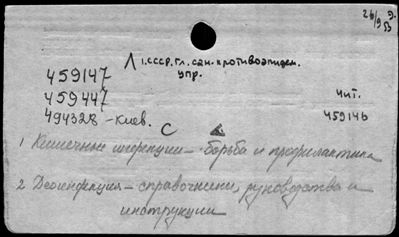 26/9 53 Э.
1. СССР. гл. сан. противоэпидем.
упр.
459147
459447
494328 - Киев.
С
Чит.
459146
1 Кишечные инфекции - борьба и профилактика
2 Дезинфекция - справочники, руководства и
инструкции